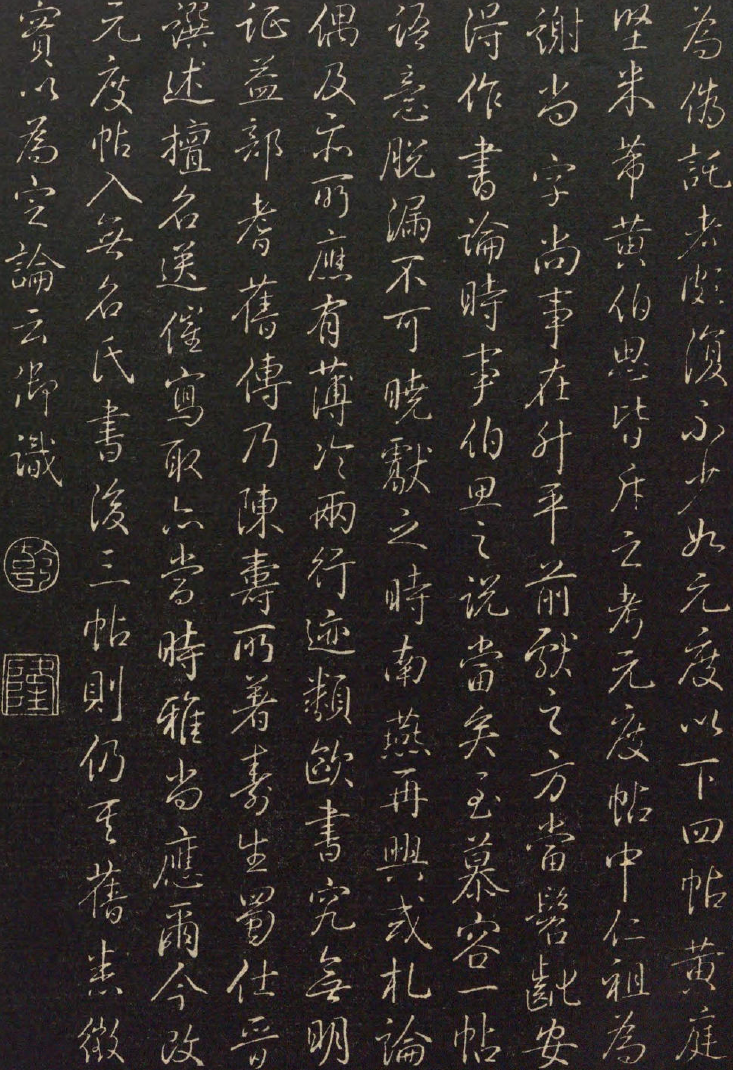 為偽託者頗復不少如元度以下四帖黄庭
堅米芾黄伯思皆斥之考元度帖中仁祖為
謝尚字尚事在升平前獻之方當髫齔安
得作書論時事伯思之說當矣至慕容一帖
語意脱漏不可曉獻之時南燕再興或札論
偶及示所應有薄冷兩行迹類歐書究無明
证益部耆舊傳乃陳壽所著壽生蜀仕晉
譔述擅名送催寫取亦當時雅尚應爾今改
元度帖入無名氏書後三帖則仍其舊悉徵
實以為定論云御識
乾
隆